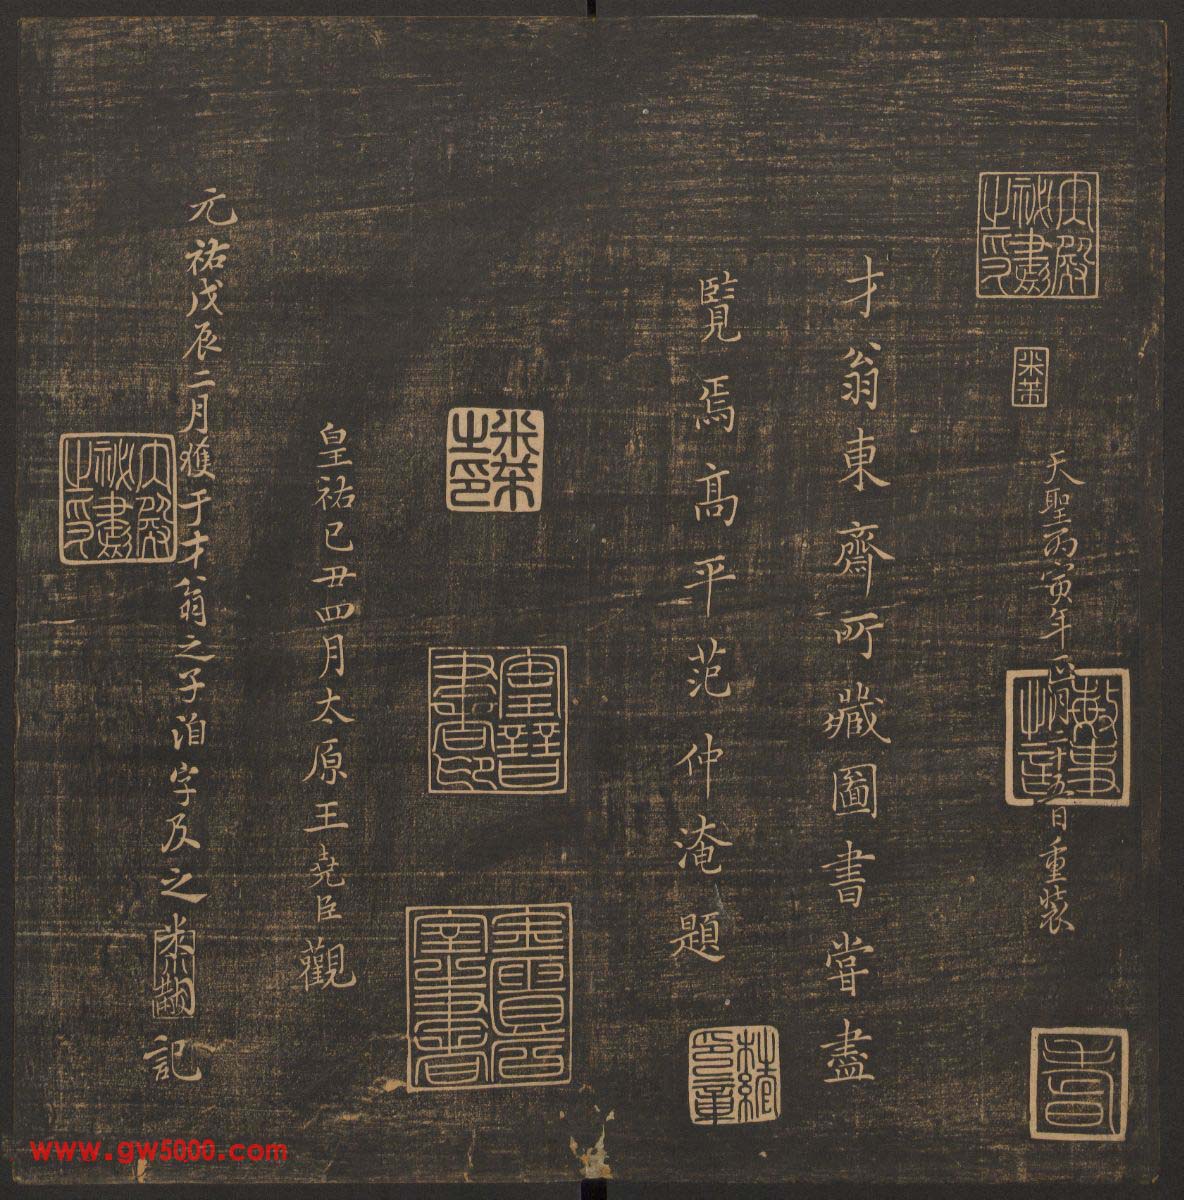 天聖丙寅年正月二十五日重裝
才翁東齋所藏圖書嘗盡
覽焉高平范仲淹題
皇祐己丑四月太原王堯臣觀
元祐戊辰二月獲于才翁之子洎字及之米黻記
米芾
米芾之印
www.gw5000.com